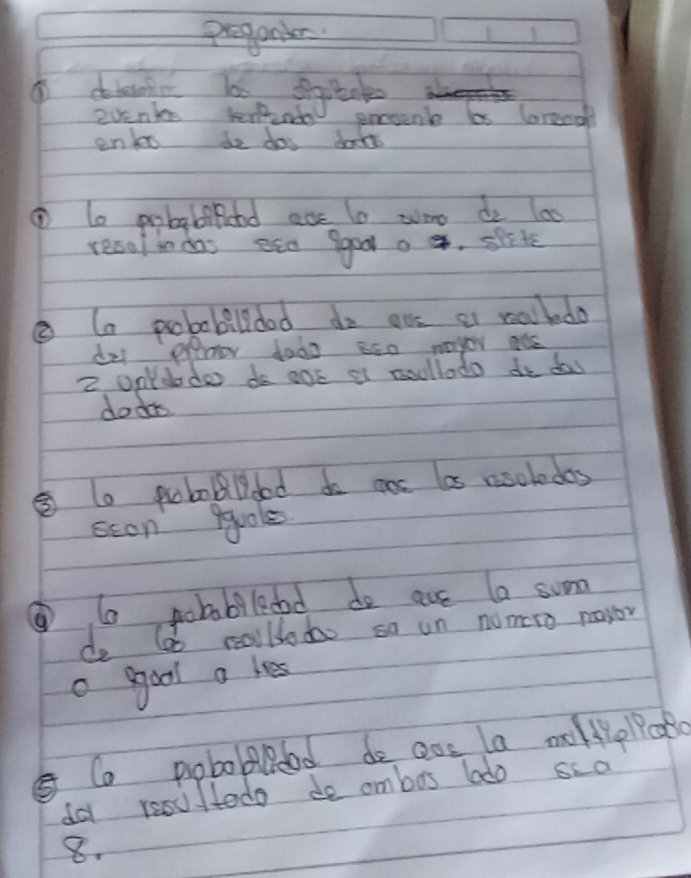 preguntas.
① los siguientes
eventos teniendo en cuenta los lanzami
entos de dos dados
① la probabilidad que la suma de los
resultados sea igual a 7. siete
② la probabilidad de que el resultado
del primer dado sea mayor que
2 unidades de que el resultado de dos
dados
③ la probabilidad de que los resultados
sean iguales.
④ la probabilidad de que la suma
de los resultados sea un numero mayor
o igual a tres
⑤ la probabilidad de que la multiplicacio
del resultado de ambos lado sea
8.